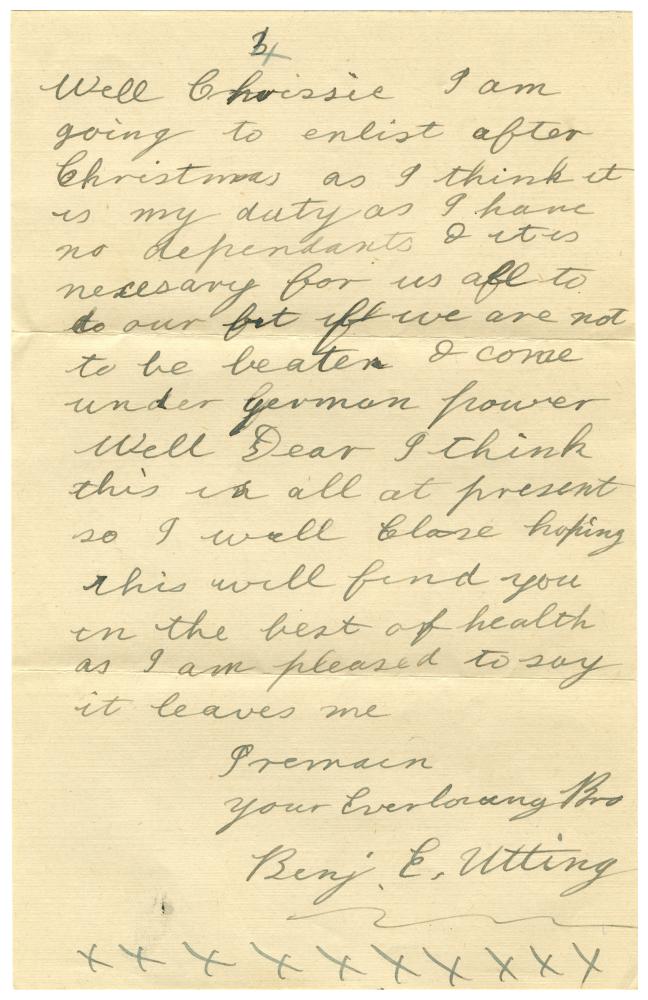 3
Well Chrissie I am
going to enlist after
Christmas as I think it
is my duty as I have
no dependants & it is
necesary for us all to
do our bit if we are not
to be beaten & come
under German power
Well Dear I think
this is all at present
so I will Close hoping
this will find you
in the best of health
as I am pleased to say
it leaves me
I remain
your Everloving Bro
Benj. E. Utting
X X X X X X X X X X